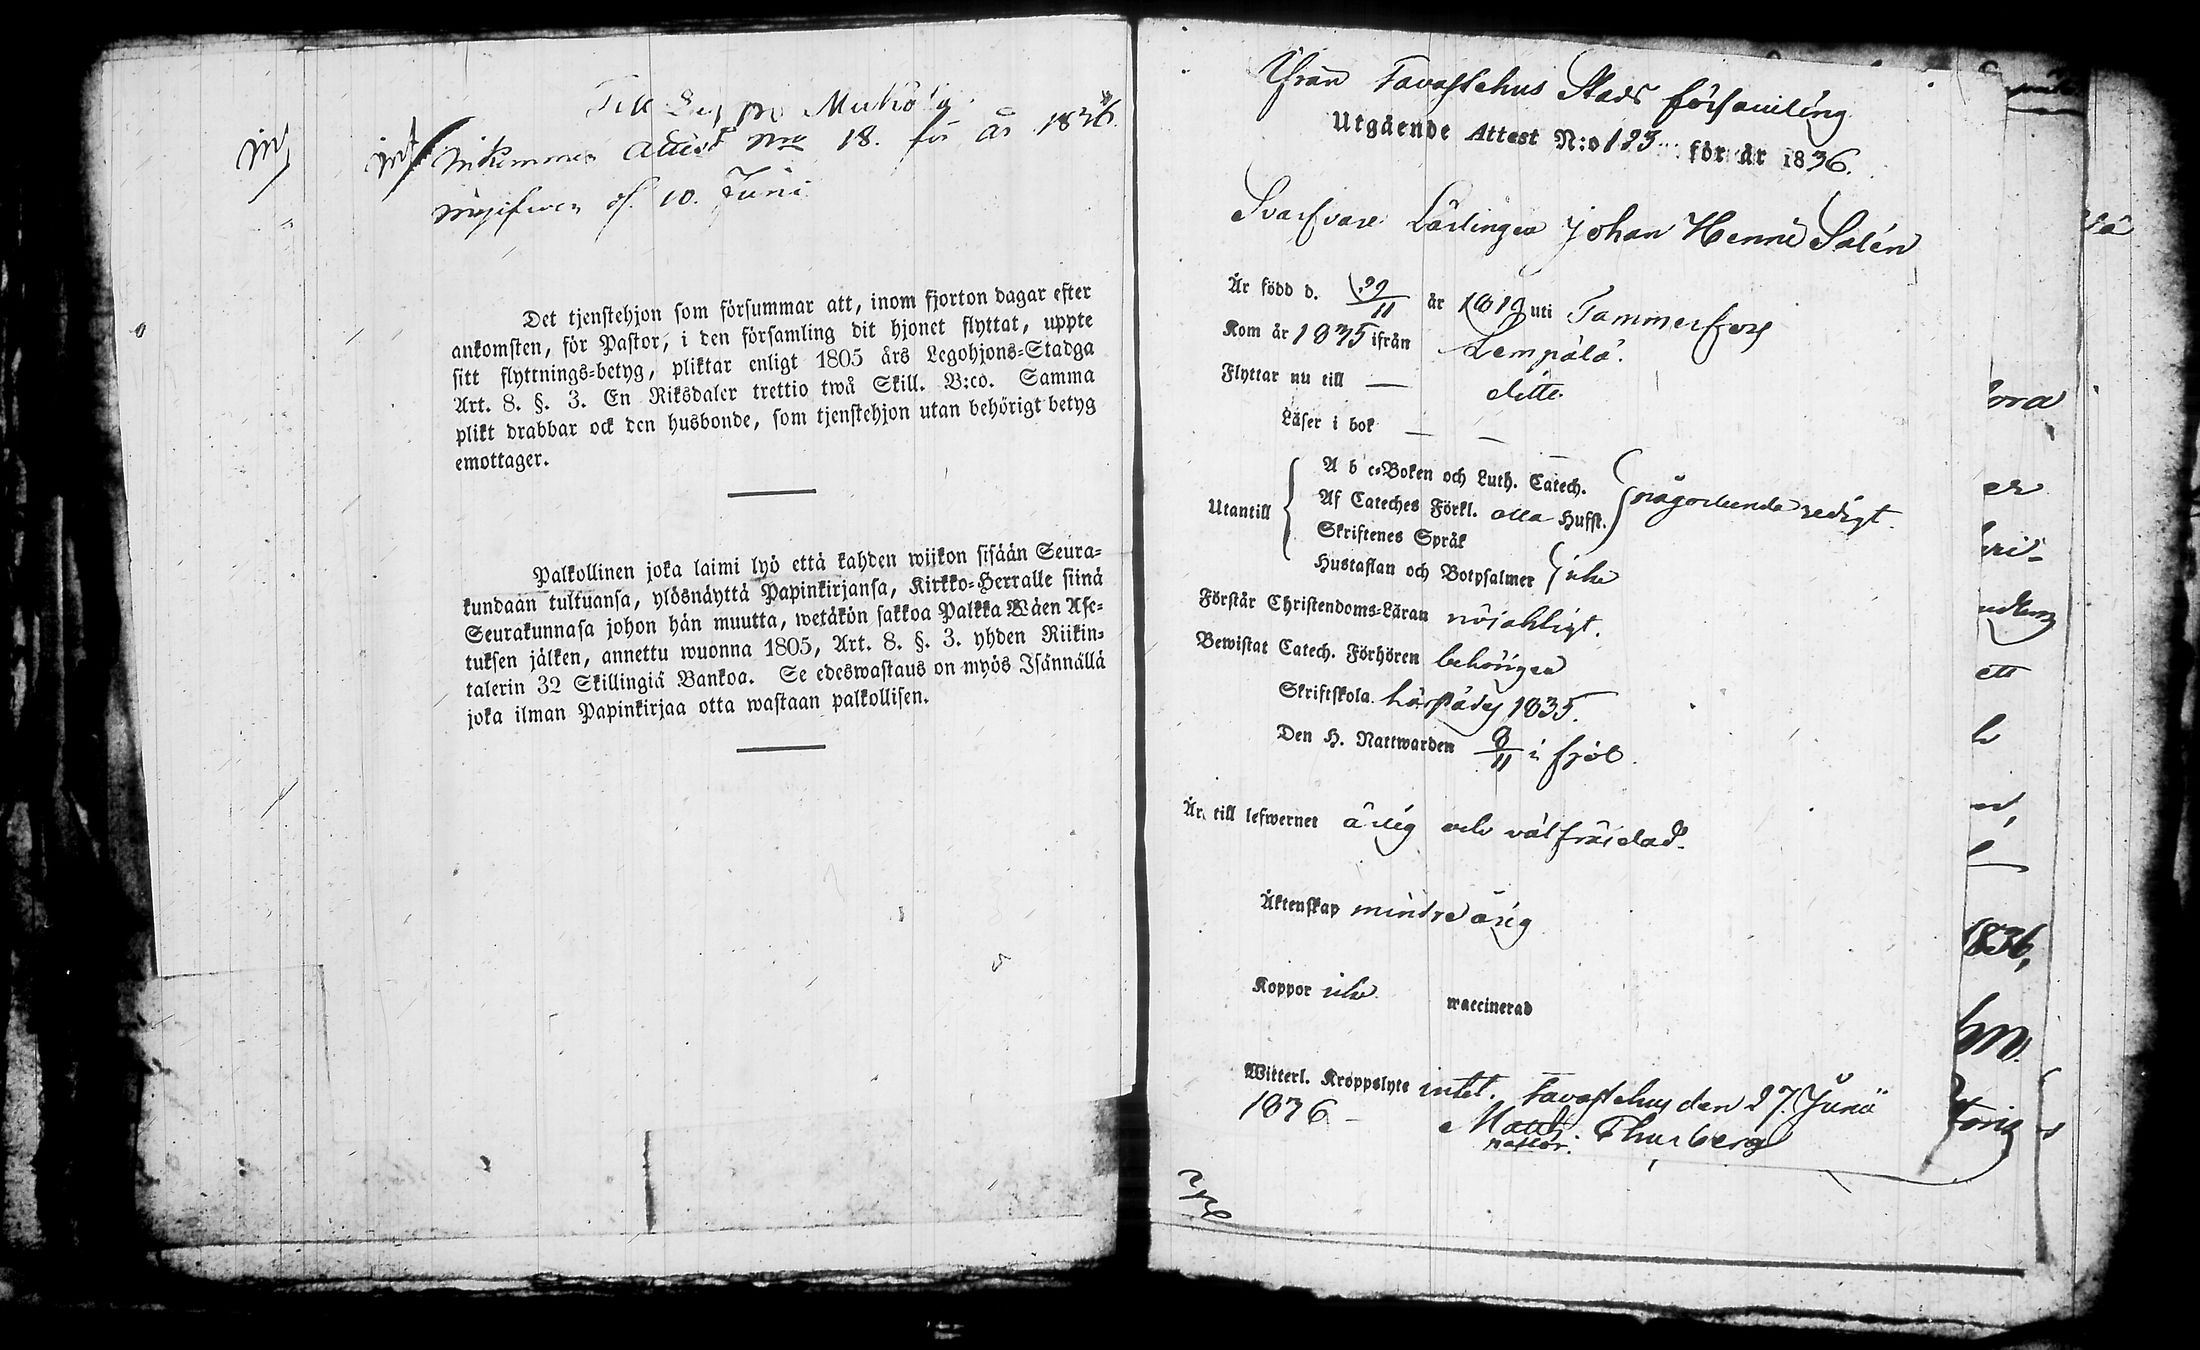 Till
Inkommen Attest Nro 18. för år 1836.
ingifven d. 10. Juni
Det tjenstehjon som försummar att, inom fjorton dagar efter
ankomsten, för Pastor, i den församling dit hjonet flyttat, uppte
sitt flyttnings-betyg, pliktar enligt 1805 års Legohjons-Stadga
Art. 8. §. 3. En Riksdaler trettio twå Skill. B:co. Samma
plikt drabbar ock den husbonde, som tjenstehjon utan behörigt betyg
emottager.
Palkollinen joka laimi lyö että kahden wiikon sisään Seura-
kundaan tultuansa, ylösnäyttä Papinkirjansa, Kirkko-Herralle siinä
Seurakunnasa johon hän muutta, wetäkön sakkoa Palkka Wäen Ase-
tuksen jälken, annettu wuonna 1805, Art. 8. §. 3. yhden Riikin-
talerin 32 Skillingiä Bankoa. Se edeswastaus on myös Isännällä
joka ilman Papinkirjaa otta wastaan palkollisen.
Ifrån Tavastehus Stads församling
Utgående Attest N:o 123 för år 1836.
Svarfvare Lärlingen Johan Henric Salén
Är född d. 29/11 år 1819 uti Tammerfors
Kom år 1835 ifrån Lempälä.
Flyttar nu till — ditto
Läser i bok — —
A b c-Boken och Luth. Catech.
Utantill Af Cateches Förkl. alla Husst. någorlunda redigt.
Skriftenes Språk
Hustaflan och Botpsalmer icke
Förstår Christendoms-Läran nöjaktligt.
Bewistat Catech. Förhören behörigen
Skriftskola härstädes 1835.
Den H. Nattwarden 8/11 i fjol.
Är till lefwernet ärlig och välfräjdad.
Äktenskap minderårig
Koppor icke waccinerad
Witterl. Kroppslyte intet. Tavastehus den 27. Junii
1836 — Math: Thurberg
pastor.